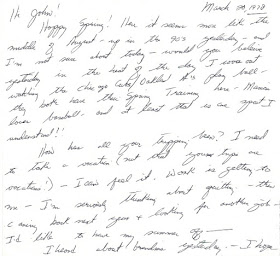 March 30, 1978
Hi John!
Happy Spring! Here it seems more like the
middle of August - up in the 90's yesterday - and
I'm not sure about today - would you believe
yesterday in the heat of the day I was out
watching the Chicago Cubs/Oakland A's play ball -
they both have their Spring Training here -
loves baseball - and at least that is one sport I
understand!!
How are all your trippings - now? I need
to take a vacation (not that young types are
vacation!) - I can feel it. Work is getting to
me - I'm seriously thinking about quitting - then
coming back next year & looking for another job -
I'd like to have my summer off -
I heard about Grandma yesterday - I hope